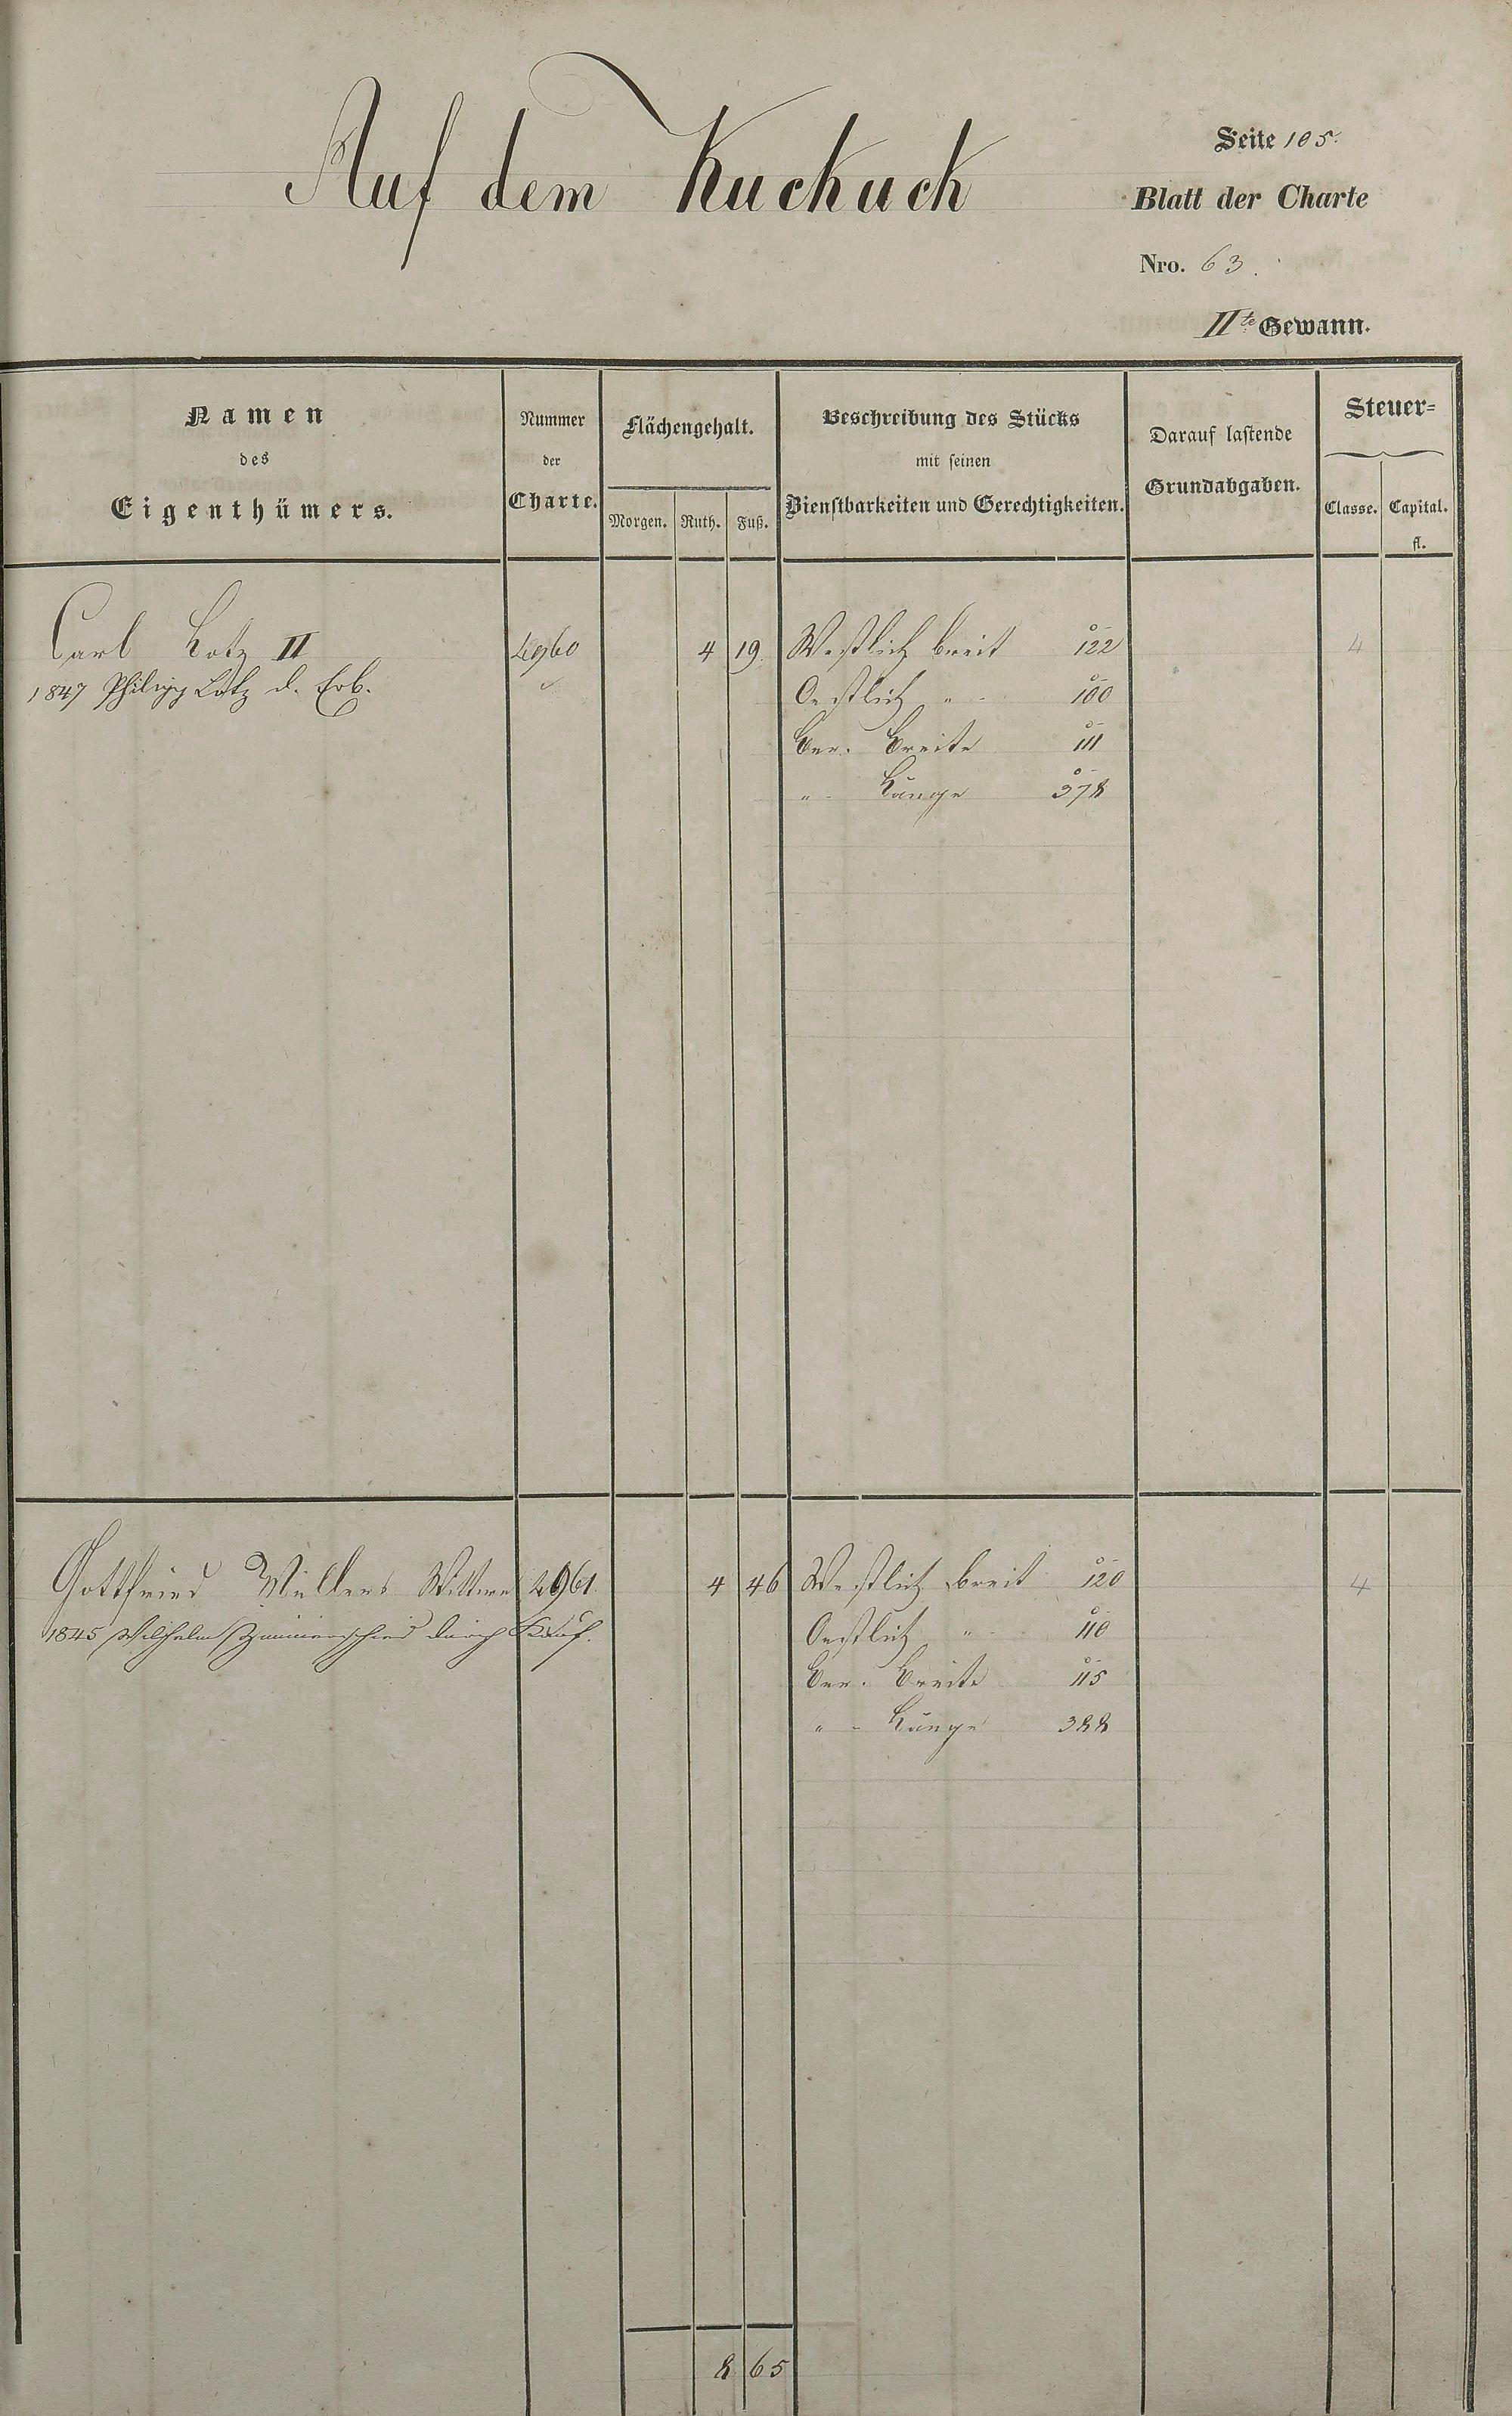 Auf dem Kuckuck
Seite 105.
Blatt der Charte
Nro. 63.
IIte Gewann.
Namen
des
Eigenthümers.
Nummer
der
Charte.
Flächengehalt.
Morgen. Ruth. Fuß.
Beschreibung des Stücks
mit seinen
Dienstbarkeiten und Gerechtigkeiten.
Darauf lastende
Grundabgaben.
Steuer-
Classe. Capital.
fl.
Carl Lotz II 4960 4 19 Westlich breit 122 4
1847 Philipp Lotz d. Erb. Oestlich " 100
Ber. Breite 111
" Länge 378
Gottfried Müllers Wittwe 4961. 4 46 Westlich breit 120 4
1845 Wilhelm Zimmerschied durch Kauf. Oestlich " 110
Ber. Breite 115
" Länge 388
8 65